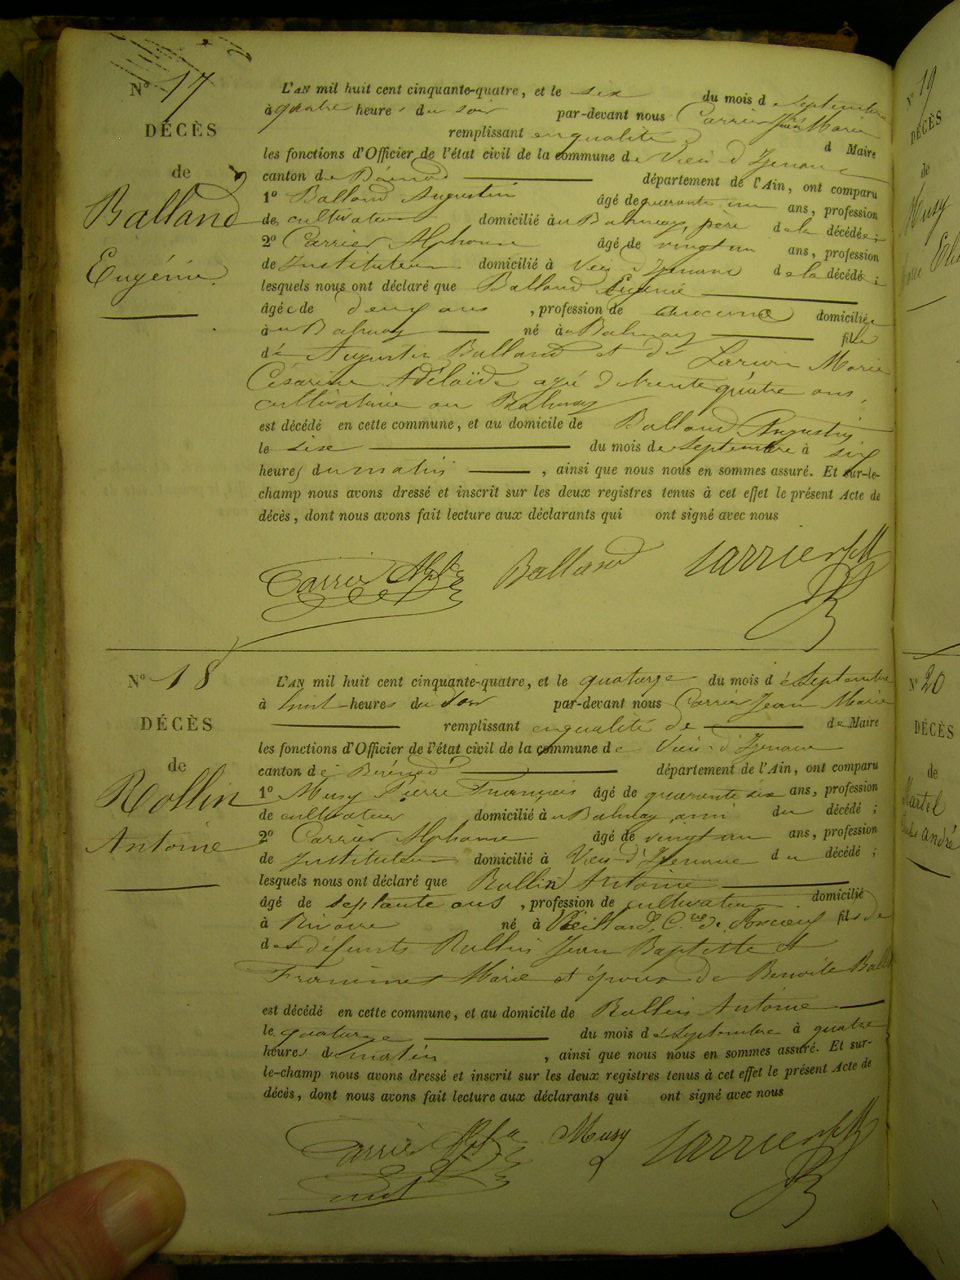 N° 17
DÉCÈS
de
Balland
Eugénie
L'AN mil huit cent cinquante-quatre, et le six du mois de Septembre
à quatre heures du soir par-devant nous Carrier Jean Marie
remplissant en qualité d Maire
les fonctions d'Officier de l'état civil de la commune de Vieu d'Izenave
canton de Brénod département de l'Ain, ont comparu
1° Balland Augustin âgé de quarante un ans, profession
de cultivateur domicilié au Balmay, père de la décédée;
2° Carrier Alphonse âgé de vingt un ans, profession
de Instituteur domicilié à Vieu d'Izenave de la décédée;
lesquels nous ont déclaré que Balland Eugénie
âgée de deux ans, profession de aucune domiciliée
au Balmay né au Balmay fille
de Augustin Balland et de Marie
Césarine Adélaïde agé de trente quatre ans,
cultivatrice au Balmay
est décédé en cette commune, et au domicile de Balland Augustin
le six du mois de Septembre à six
heures du matin, ainsi que nous nous en sommes assuré. Et sur-le-
champ nous avons dressé et inscrit sur les deux registres tenus à cet effet le présent Acte de
décès, dont nous avons fait lecture aux déclarants qui ont signé avec nous
Carrier Alph. Balland Carrier J M
N° 18
DÉCÈS
de
Rollin
Antoine
L'AN mil huit cent cinquante-quatre, et le quatorze du mois de Septembre
à huit heures du soir par-devant nous Carrier Jean Marie
remplissant en qualité de de Maire
les fonctions d'Officier de l'état civil de la commune de Vieu-d'Izenave
canton de Brénod département de l'Ain, ont comparu
1° Musy Pierre François âgé de quarante six ans, profession
de cultivateur domicilié au Balmay, ami du décédé;
2° Carrier Alphonse âgé de vingt un ans, profession
de Instituteur domicilié à Vieu-d'Izenave du décédé;
lesquels nous ont déclaré que Rollin Antoine
âgé de septante ans, profession de cultivateur domicilié
à né à fils de
des défunts Rollin Jean Baptiste et
Marie et époux de Benoite
est décédé en cette commune, et au domicile de Rollin Antoine
le quatorze du mois de Septembre à quatre
heures du matin, ainsi que nous nous en sommes assuré. Et sur-
le-champ nous avons dressé et inscrit sur les deux registres tenus à cet effet le présent Acte de
décès, dont nous avons fait lecture aux déclarants qui ont signé avec nous
Carrier Alph. Musy Carrier J M
N° 19
DÉCÈS
de
Musy
N° 20
DÉCÈS
de
Martel
André